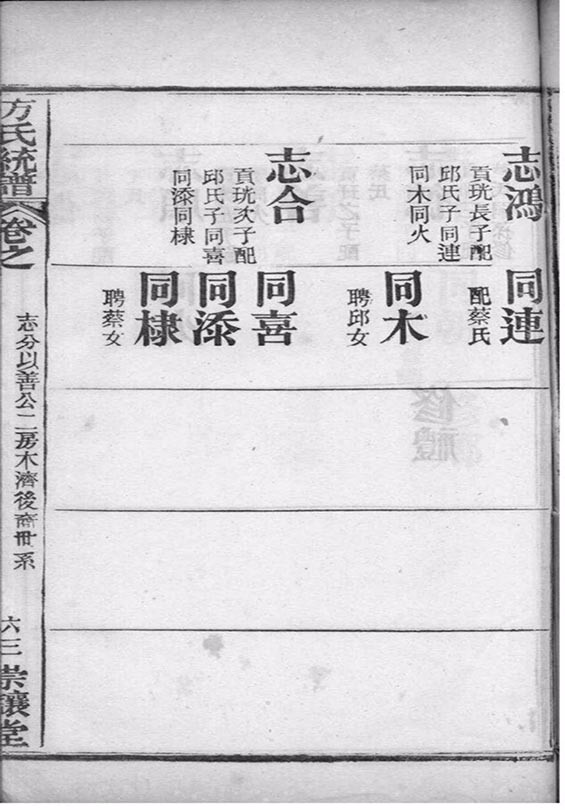 志鴻
貢珖長子配
邱氏子同連
同木同火
志合
貢珖次子配
邱氏子同喜
同漆同棣
同連
配蔡氏
同木
聘邱女
同喜
同漆
同棣
聘蔡女
方氏統譜
卷之
志分以善公二房木濟後裔世系
六三
崇讓堂